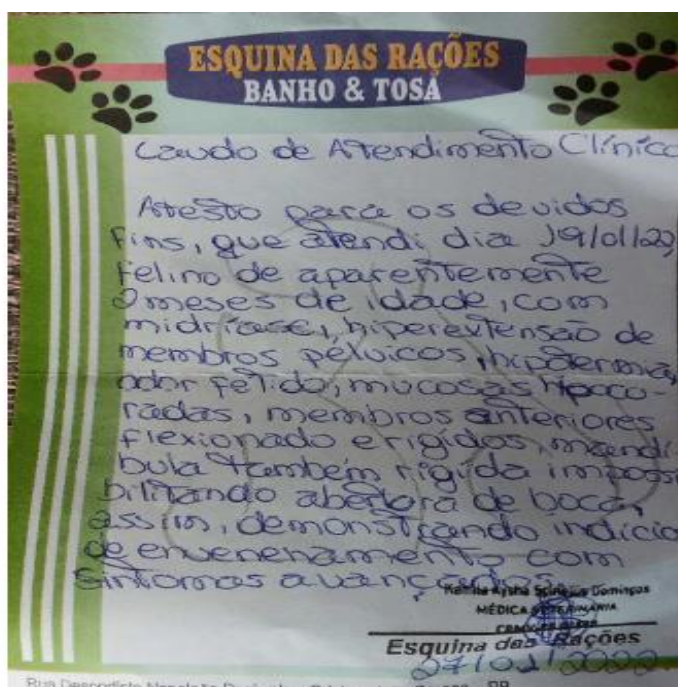 ESQUINA DAS RAÇÕES
BANHO & TOSA
Laudo de Atendimento Clínico
Atesto para os devidos
fins, que atendi dia 19/01/22,
felino de aparentemente
2 meses de idade, com
midríase, hiperextensão de
membros pélvicos, hipotermia,
odor fétido, mucosas hipoco-
radas, membros anteriores
flexionado e rígidos, mandí-
bula também rígida impossi
bilitando abertura de boca,
assim, demonstrando indício
de envenenamento com
sintomas avançados
Domingos
MÉDICA VETERINÁRIA
Esquina das Rações
27/01/2022